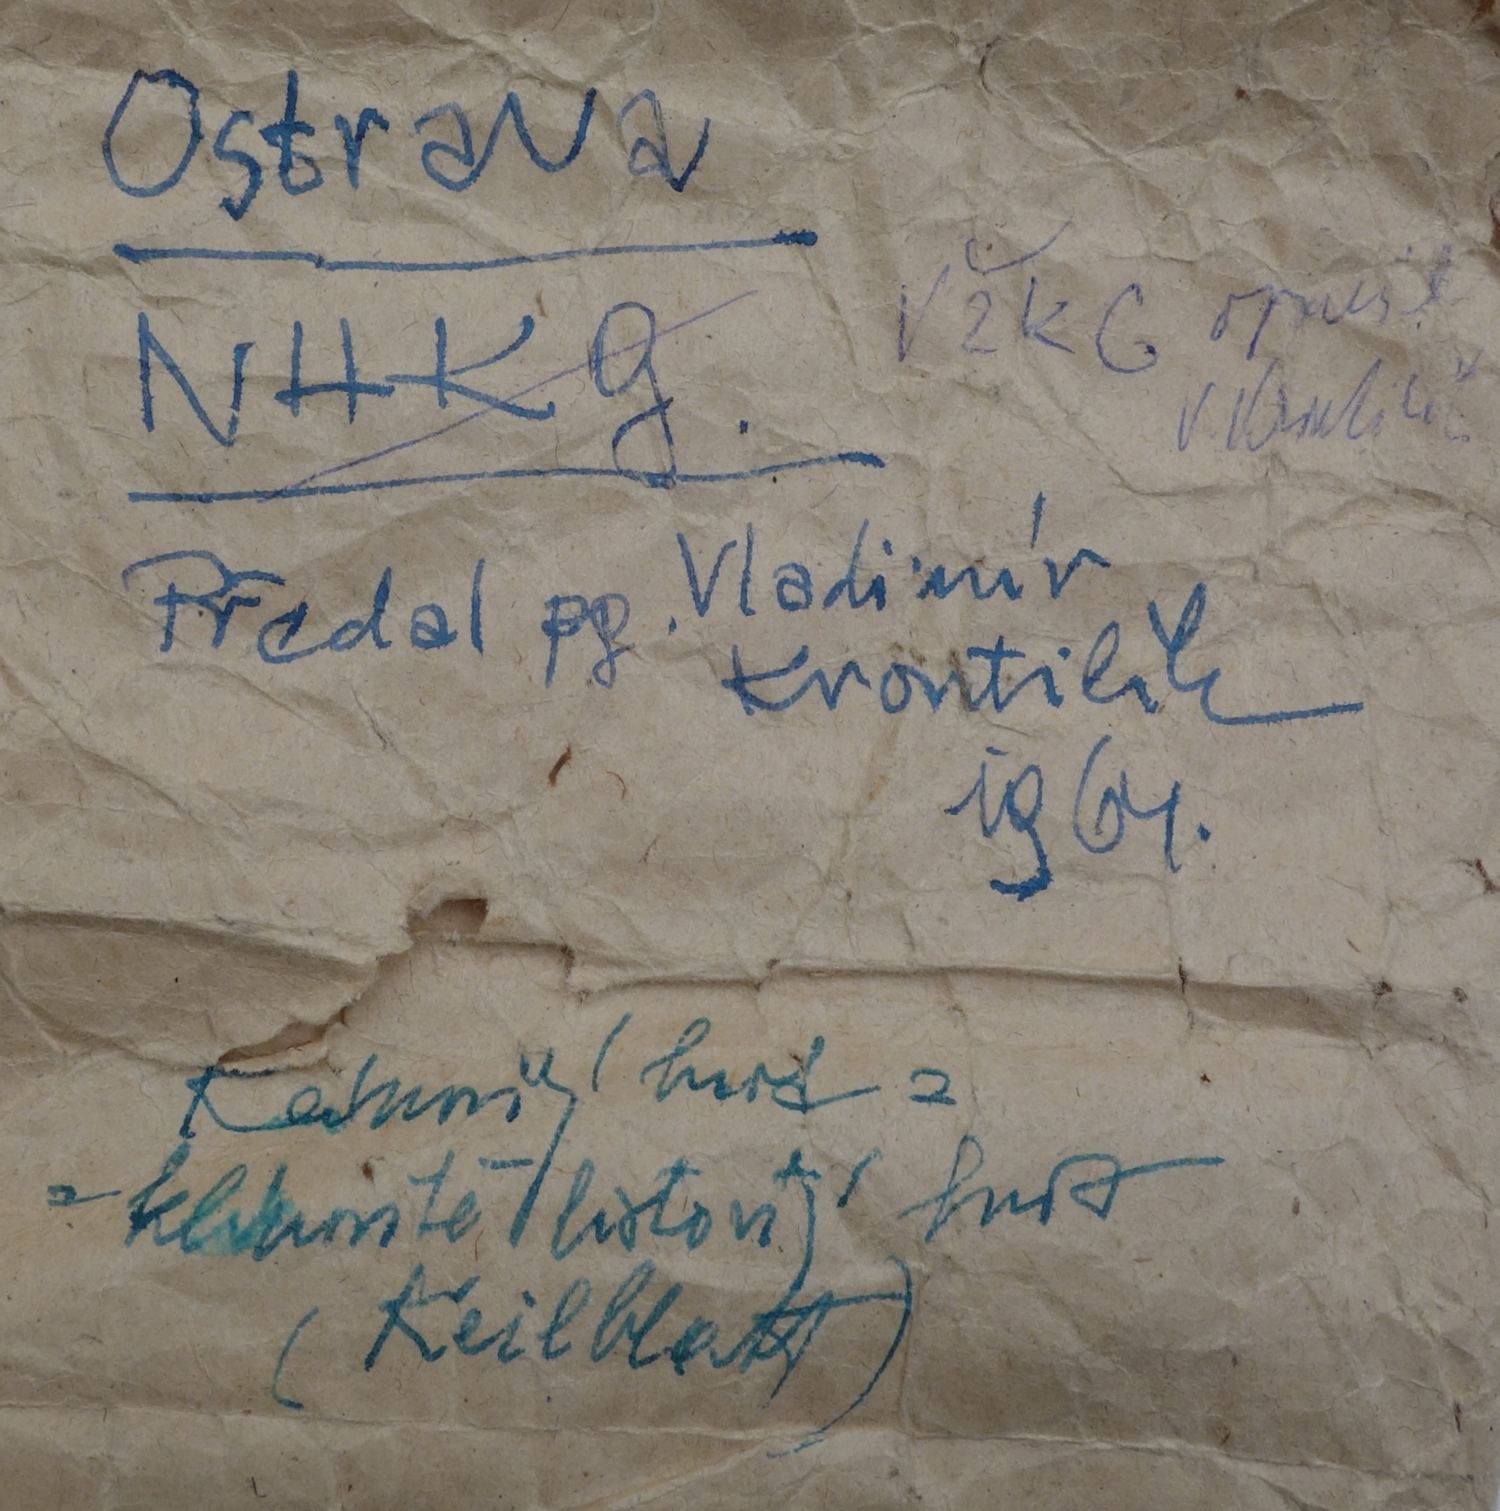 Ostrava
NHKG.
VŽKG opravil
Předal pg. Vladimír
Krontilík
1964.
hrot =
= klínovitě listový hrot
(Keilblatt)